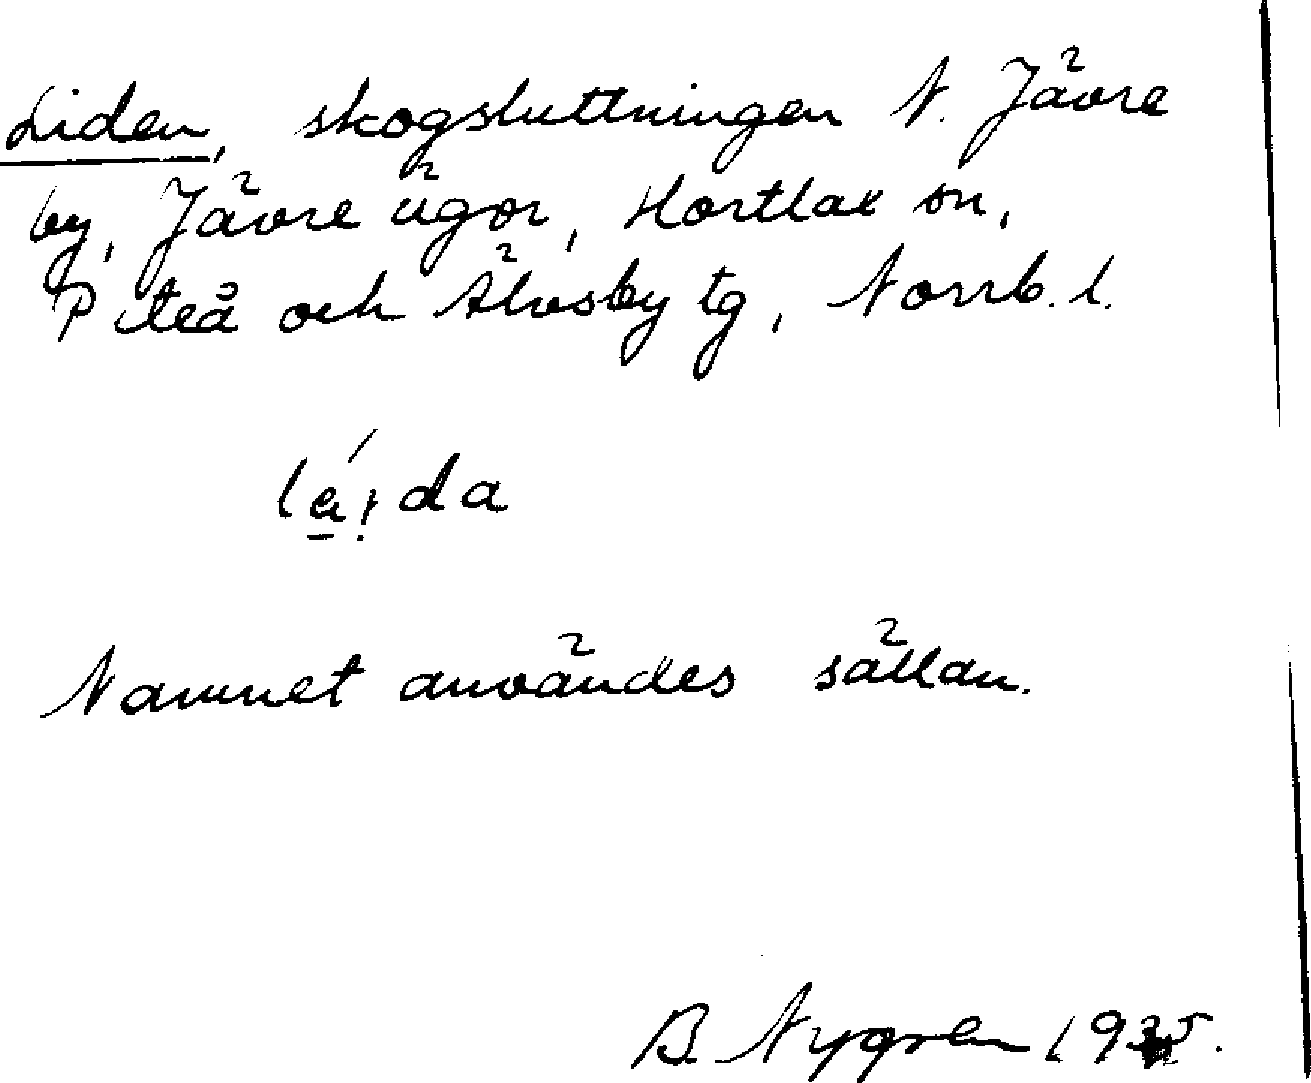 Liden, skogsluttningen N. Jävre
by, Jävre ägor, Hortlax sn,
Piteå och Älvsby tg, Norrb. l.
Namnet användes sällan.
B. Nygren